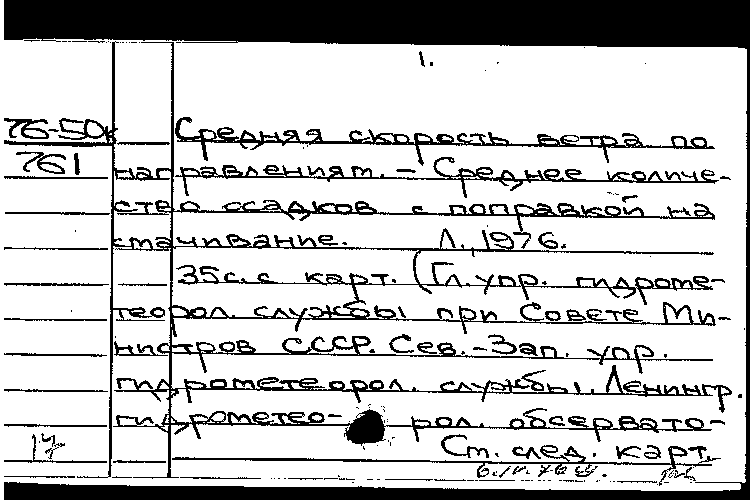 1.
76-50к
761
Средняя скорость ветра по
направлениям. - Среднее количе-
ство осадков с поправкой на
смачивание. Л., 1976.
35с. с карт. (Гл. упр. гидроме-
теорол. службы при Совете Ми-
нистров СССР. Сев.-Зап. упр.
гидрометеорол. службы. Ленингр.
гидрометео- рол. обсервато-
Ст. след. карт.
17